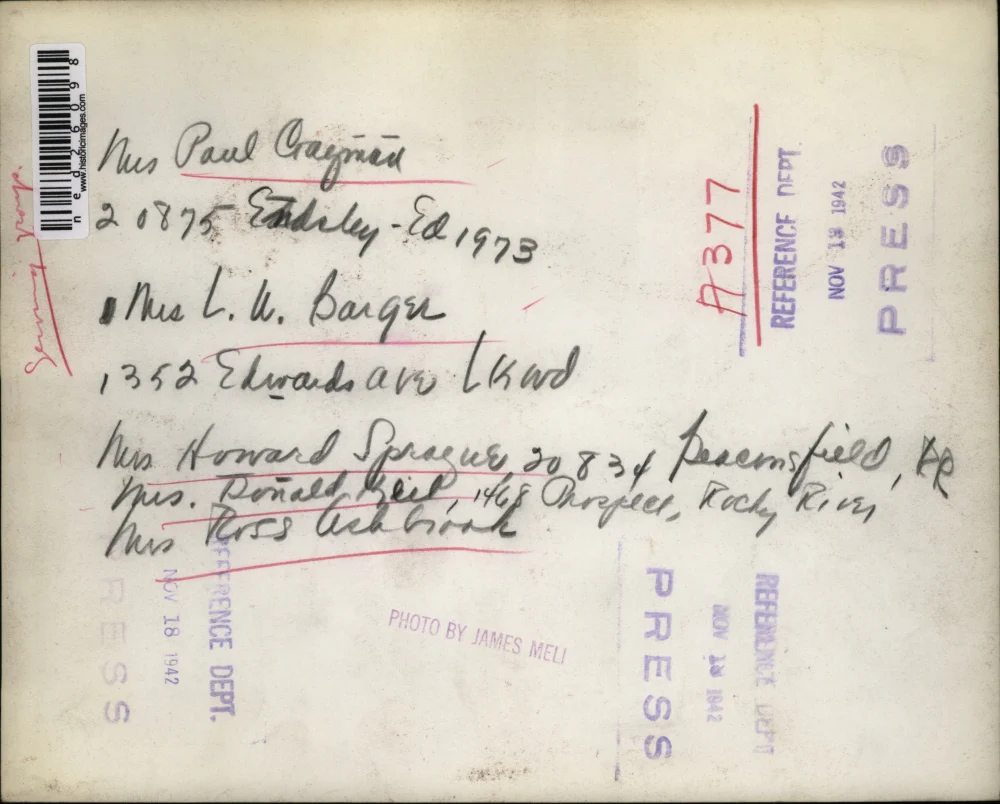 Mrs Paul Craymad
20875 Endsley - Ed 1973
Mrs L. W. Barger
1352 Edwards ave LKwd
Mrs Howard Sprague, 20834 Beaconsfield, RR
Mrs. Donald Keil, 1468 Prospect, Rocky River
Mrs Ross Ashbrook
A377
REFERENCE DEPT.
NOV 18 1942
PRESS
PHOTO BY JAMES MELI
PRESS
NOV 18 1942
REFERENCE DEPT.
PRESS
NOV 18 1942
REFERENCE DEPT
ned26098
www.historicimages.com